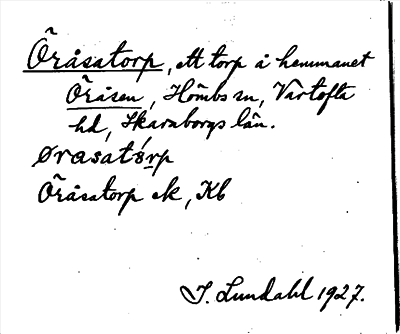 Öråsatorp, ett torp å hemmanet
Öråsen, Hömbs sn, Vartofta
hd, Skaraborgs län.
ørasatórp
Öråsatorp ek, Kb
I. Lundahl 1927.